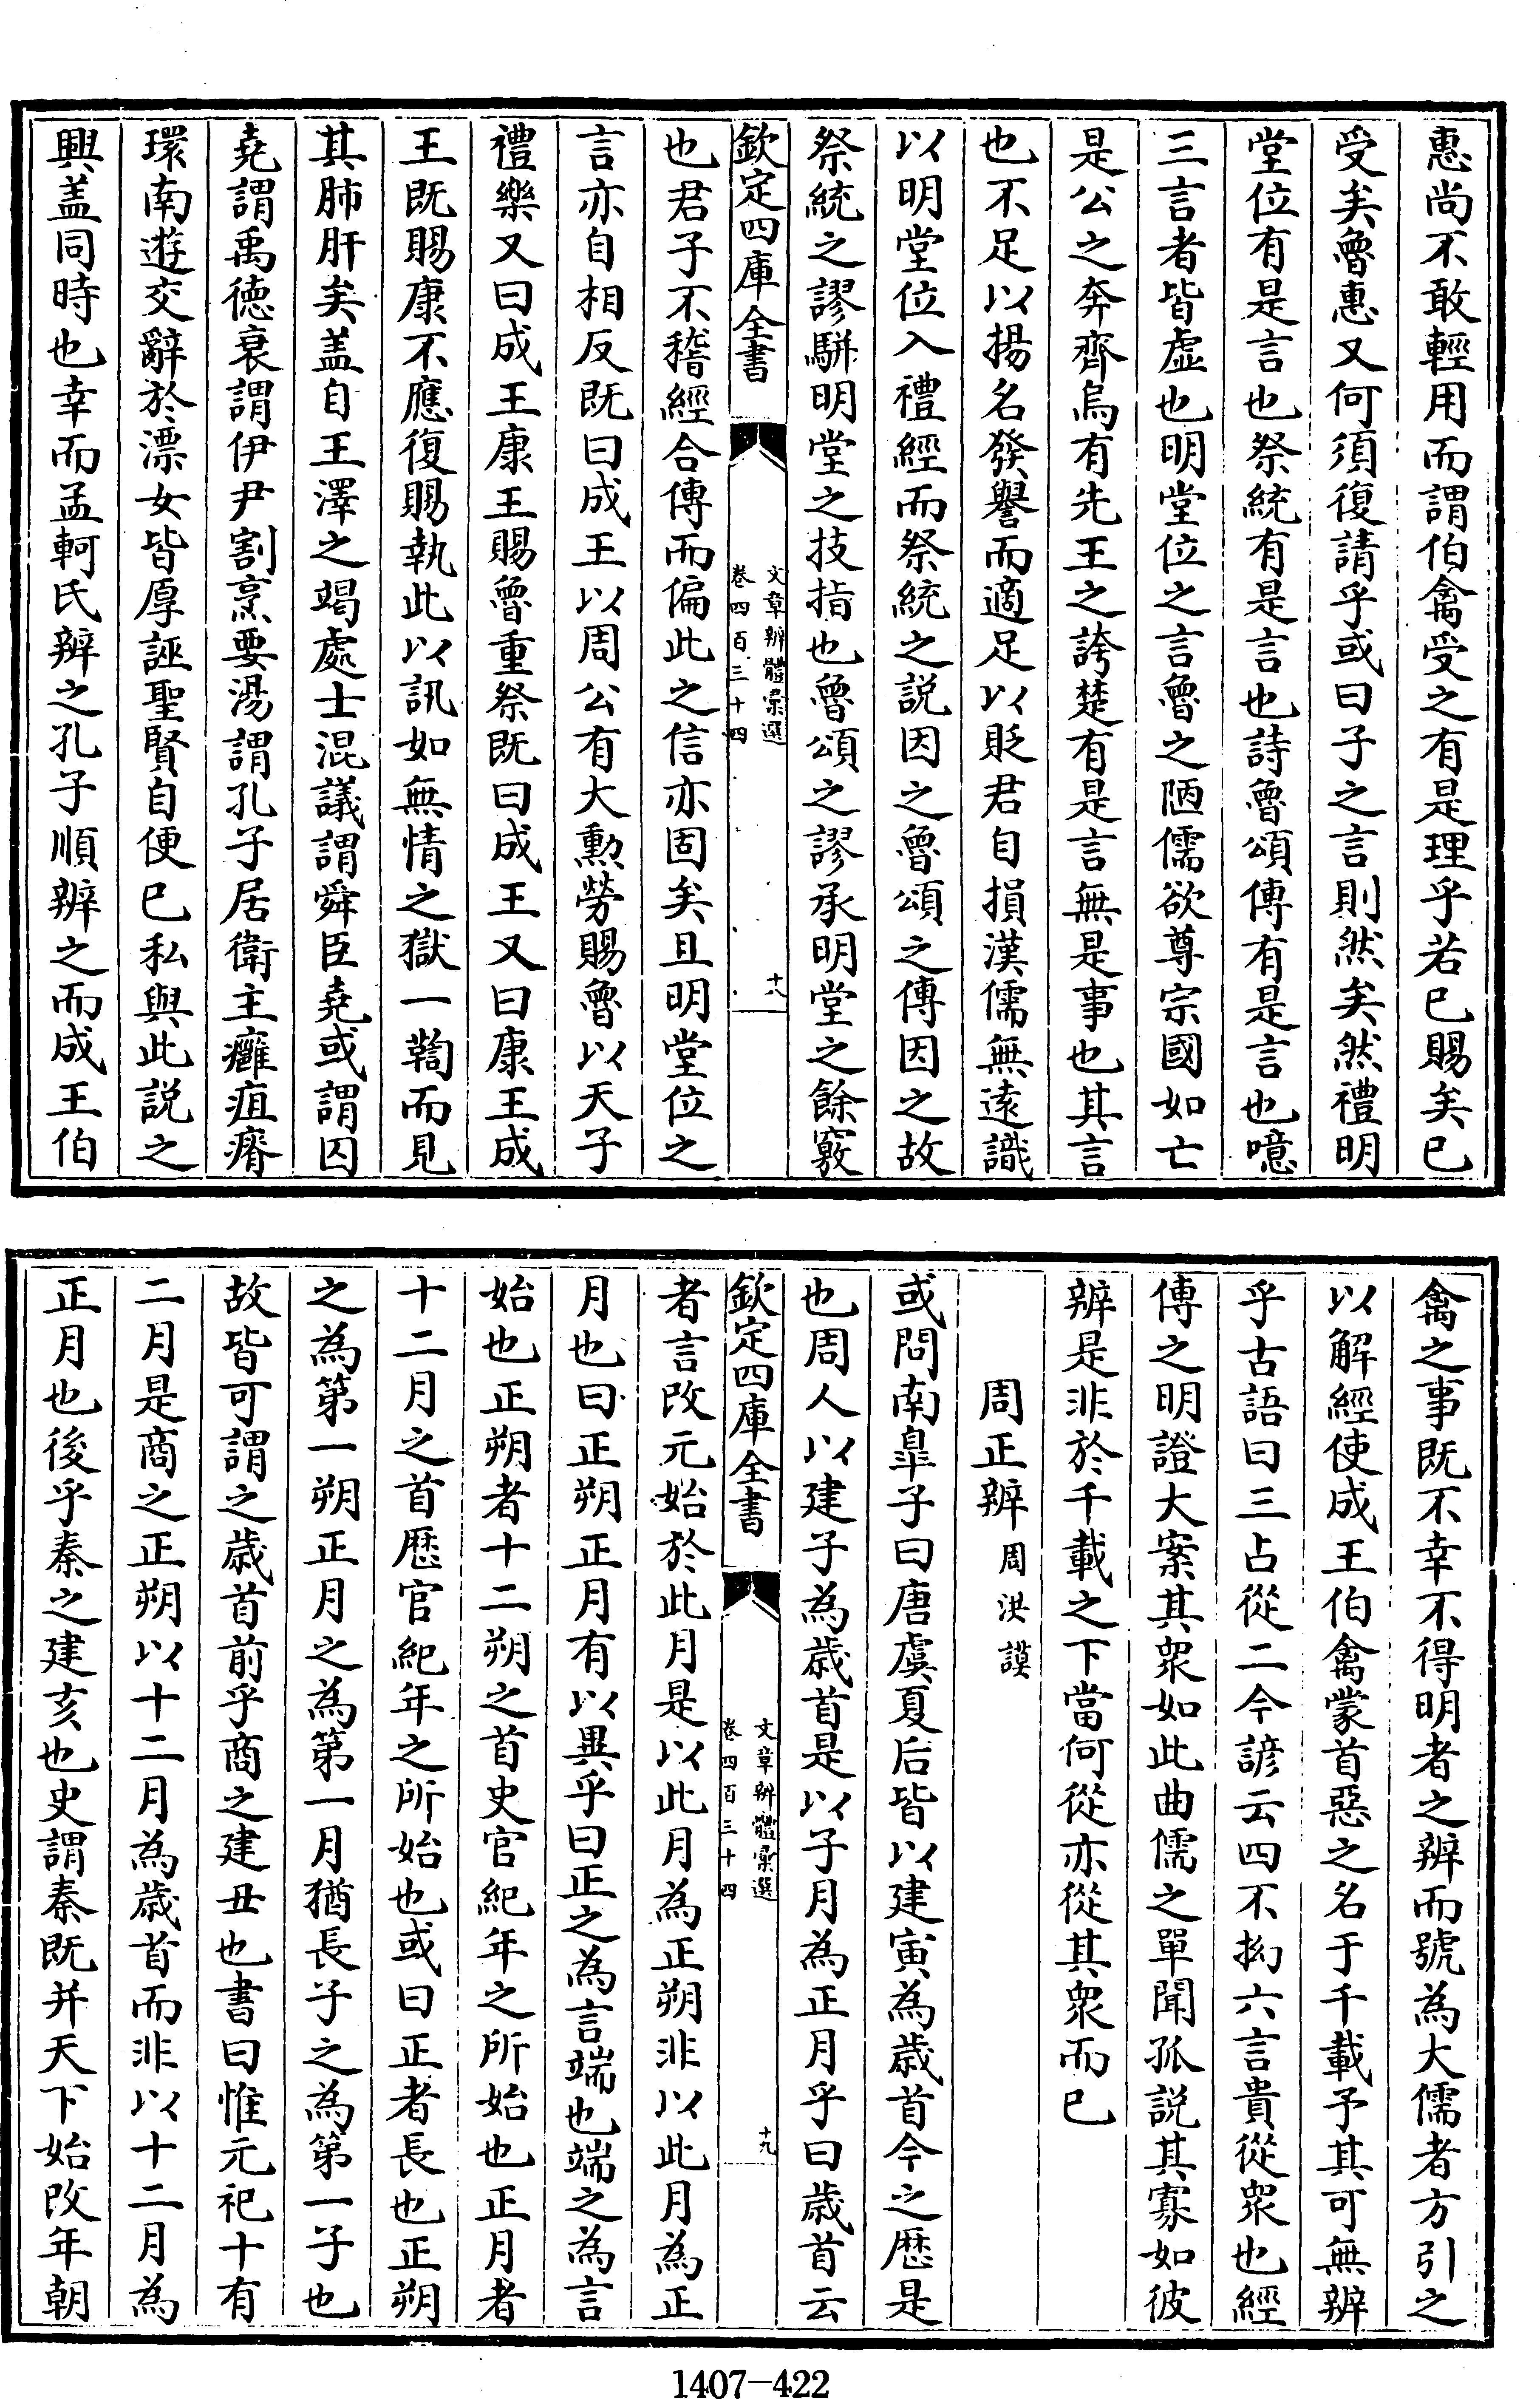 惠尚不敢輕用而謂伯禽受之有是理乎若已賜矣已
受矣魯惠又何須復請乎或曰子之言則然矣然禮明
堂位有是言也祭統有是言也詩魯頌傳有是言也噫
三言者皆虛也明堂位之言魯之陋儒欲尊宗國如亡
是公之奔齊烏有先王之誇楚有是言無是事也其言
也不足以揚名發譽而適足以貶君自損漢儒無遠識
以明堂位入禮經而祭統之説因之魯頌之傳因之故
祭統之謬騈明堂之技指也魯頌之謬承明堂之餘竅
欽定四庫全書
文章辨體彙選
卷四百三十四
十八
也君子不稽經合傳而偏此之信亦固矣且明堂位之
言亦自相反既曰成王以周公有大勲勞賜魯以天子
禮樂又曰成王康王賜魯重祭既曰成王又曰康王成
王既賜康不應復賜執此以訊如無情之獄一鞫而見
其肺肝矣盖自王澤之竭處士混議謂舜臣堯或謂囚
堯謂禹徳衰謂伊尹割烹要湯謂孔子居衛主癰疽瘠
環南遊交辭於漂女皆厚誣聖賢自便已私與此説之
興盖同時也幸而孟軻氏辨之孔子順辨之而成王伯
禽之事既不幸不得明者之辨而號為大儒者方引之
以解經使成王伯禽蒙首惡之名于千載予其可無辨
乎古語曰三占從二今諺云四不拗六言貴從衆也經
傳之明證大案其衆如此曲儒之單聞孤説其寡如彼
辨是非於千載之下當何從亦從其衆而已
周正辨 周洪謨
或問南臯子曰唐虞夏后皆以建寅為歲首今之厯是
也周人以建子為歲首是以子月為正月乎曰歲首云
欽定四庫全書
文章辨體彙選
卷四百三十四
十九
者言改元始於此月是以此月為正朔非以此月為正
月也曰正朔正月有以異乎曰正之為言端也端之為言
始也正朔者十二朔之首史官紀年之所始也正月者
十二月之首厯官紀年之所始也或曰正者長也正朔
之為第一朔正月之為第一月猶長子之為第一子也
故皆可謂之歲首前乎商之建丑也書曰惟元祀十有
二月是商之正朔以十二月為歲首而非以十二月為
正月也後乎秦之建亥也史謂秦既并天下始改年朝
1407-422